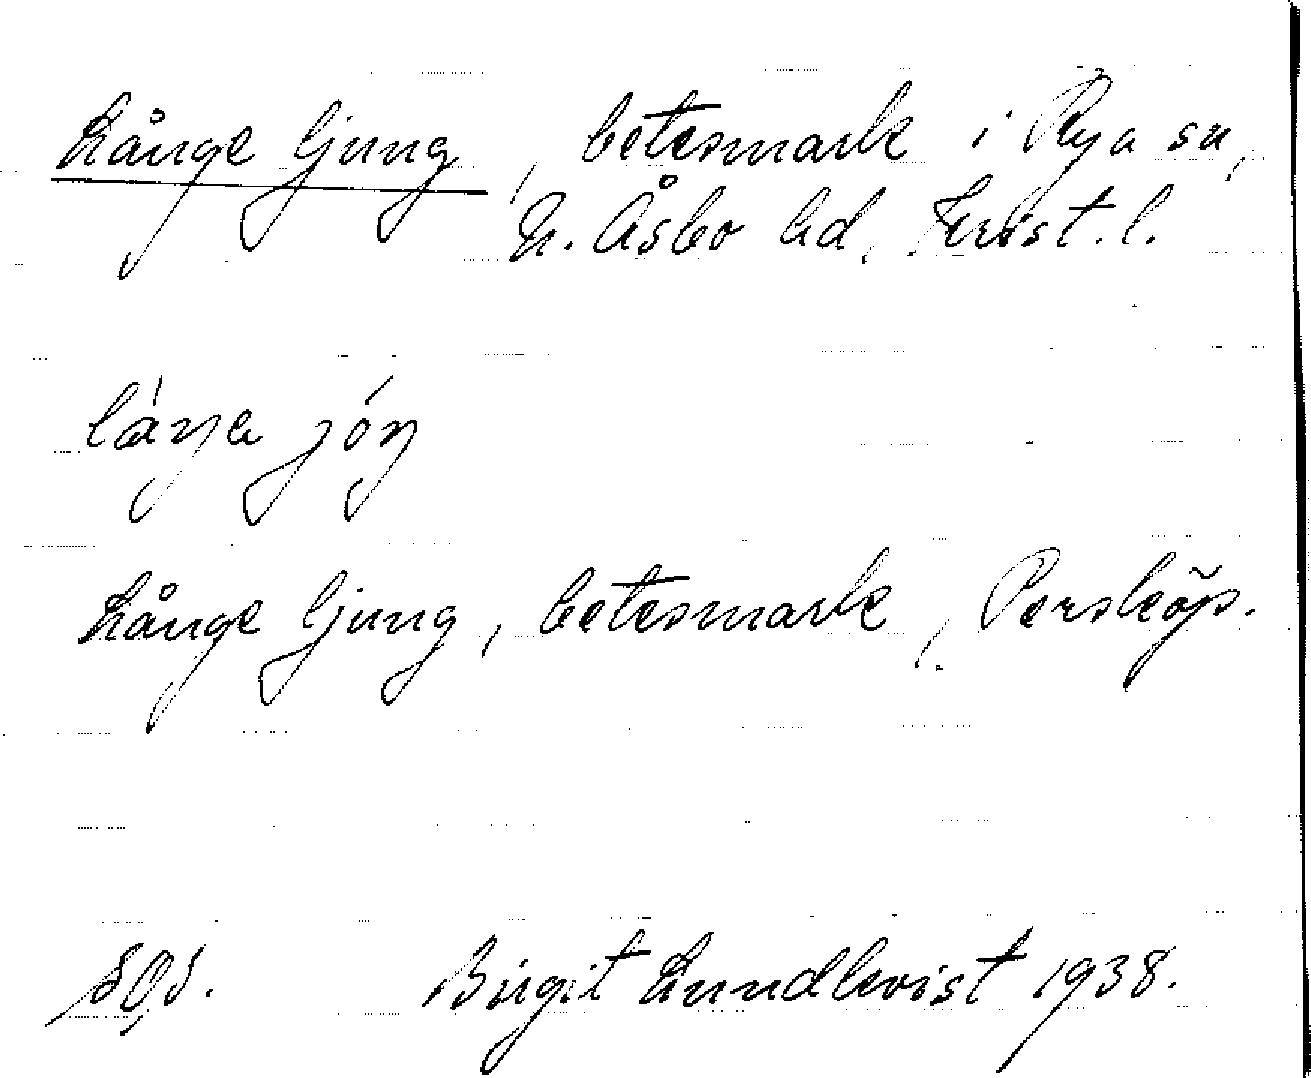 Långe ljung, betesmark i Rya sn,
N. Åsbo hd, Krist. l.
láŋa jóŋ
Långe ljung, betesmark, Perskõp.
Birgit Lundkvist 1938.